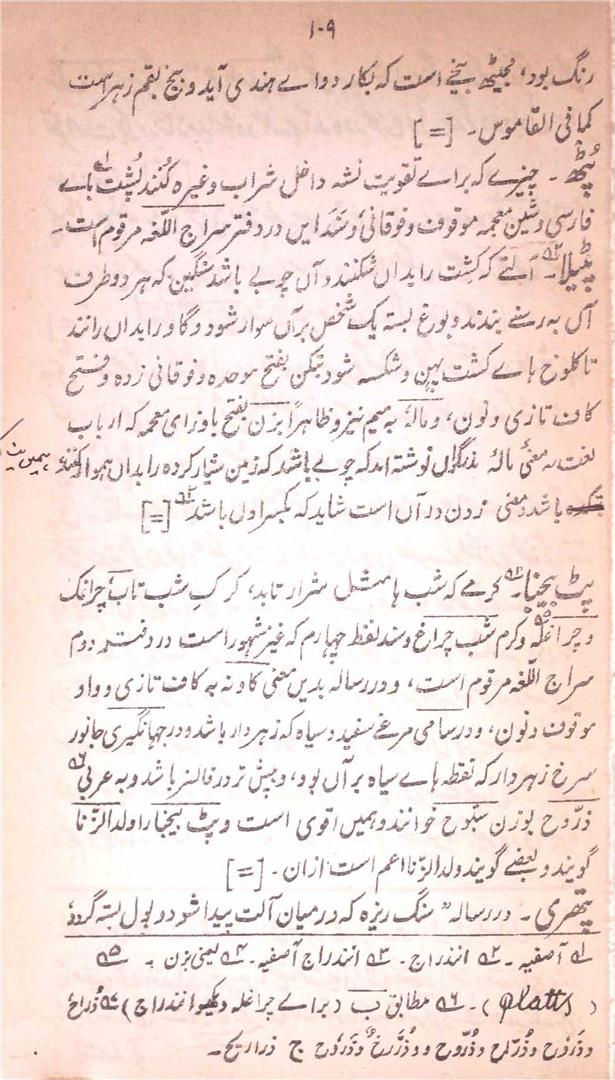 ۱۰۹
رنگ بود، مجیٹھ بیخے است کہ بکار دواے ہندی آید و بیخ بقم زہر است
کما فی القاموس۔ [=]
پُٹھ۔ چیزے کہ براے تقویت نشہ داخل شراب وغیرہ کُنند پُشت بباے
فارسی و شین معجمہ موقوف و فوقانی و سَنَد ایں در دفتر سراج اللّغہ مرقوم است۔
پٹیلا۔ آلتے کہ کشت را بداں شکنند و آں چوبے باشد سنگین کہ ہر دو طرف
آں بہ رسنے بندند و یوغ بستہ یک شخص برآں سوار شود و گاو را بداں رانند
تا کلوخ ہاے کشت پہن و شکستہ شود تبکن بفتح موحدہ و فوقانی زدہ و فتح
کاف تازی و نون، و مالہ بہ میم نیز و ظاہراً بزن بفتح با و زای معجمہ کہ ارباب
لغت بہ معنیٔ مالۂ بذرگراں نوشتہ اند کہ چوبے باشد کہ زمین شیار کردہ را بداں ہموار کنند ہمیں
باشد و معنی زدن در آں است شاید کہ بکسر اول باشد [=]
پٹ بیجنا۔ کرمے کہ شب ہا مثل شرار تابد، کرکِ شب تاب، چراغک
و چراغلہ و کرم شب چراغ و سند لفظ چہارم کہ غیر مشہور است در دفتر دوم
سراج اللّغہ مرقوم است، و در رسالہ بدیں معنی کاونہ بہ کاف تازی و واو
موقوف و نون، و در سامی مرغے سفید و سیاہ کہ زہردار باشد و در جہانگیری جانور
سرخ زہردار کہ نقطہ ہاے سیاہ برآں بود، و بیش تر در فالیز باشد و بہ عربی
ذرّوح بوزن سبّوح خوانند و ہمیں اقوی است و پٹ بیجنا را ولد الزّنا
گویند و بعضے گویند ولد الزّنا اعم است ازان۔ [=]
پتھری۔ در رسالہ "سنگ ریزہ کہ درمیان آلت پیدا شود و بول بستہ گردد
۱ آصفیہ۔ ۲ انندراج۔ ۳ انندراج آصفیہ۔ ۴ یعنی بزن۔ ۵
(Platts)۔ ۶ مطابق ب (براے چراغلہ دیکھو انندراج) ۷ ذُراح
و ذَرُوح و ذُرَّاح و ذُرّوح و ذُرَّرح و ذَرُوح ج ذراریح۔